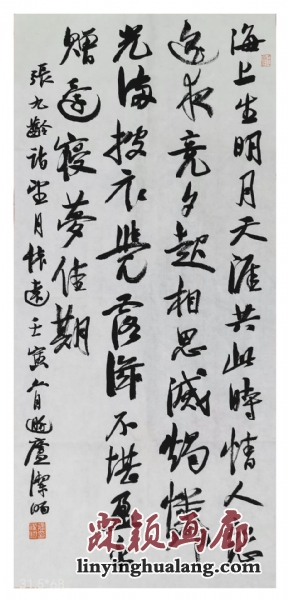 海上生明月天涯共此時情人怨
遙夜竟夕起相思滅燭憐
光滿披衣覺露滋不堪盈
贈還寢夢佳期
張九齡詩望月怀遠壬寅月廬
琳颖画廊
linyinghualang.com